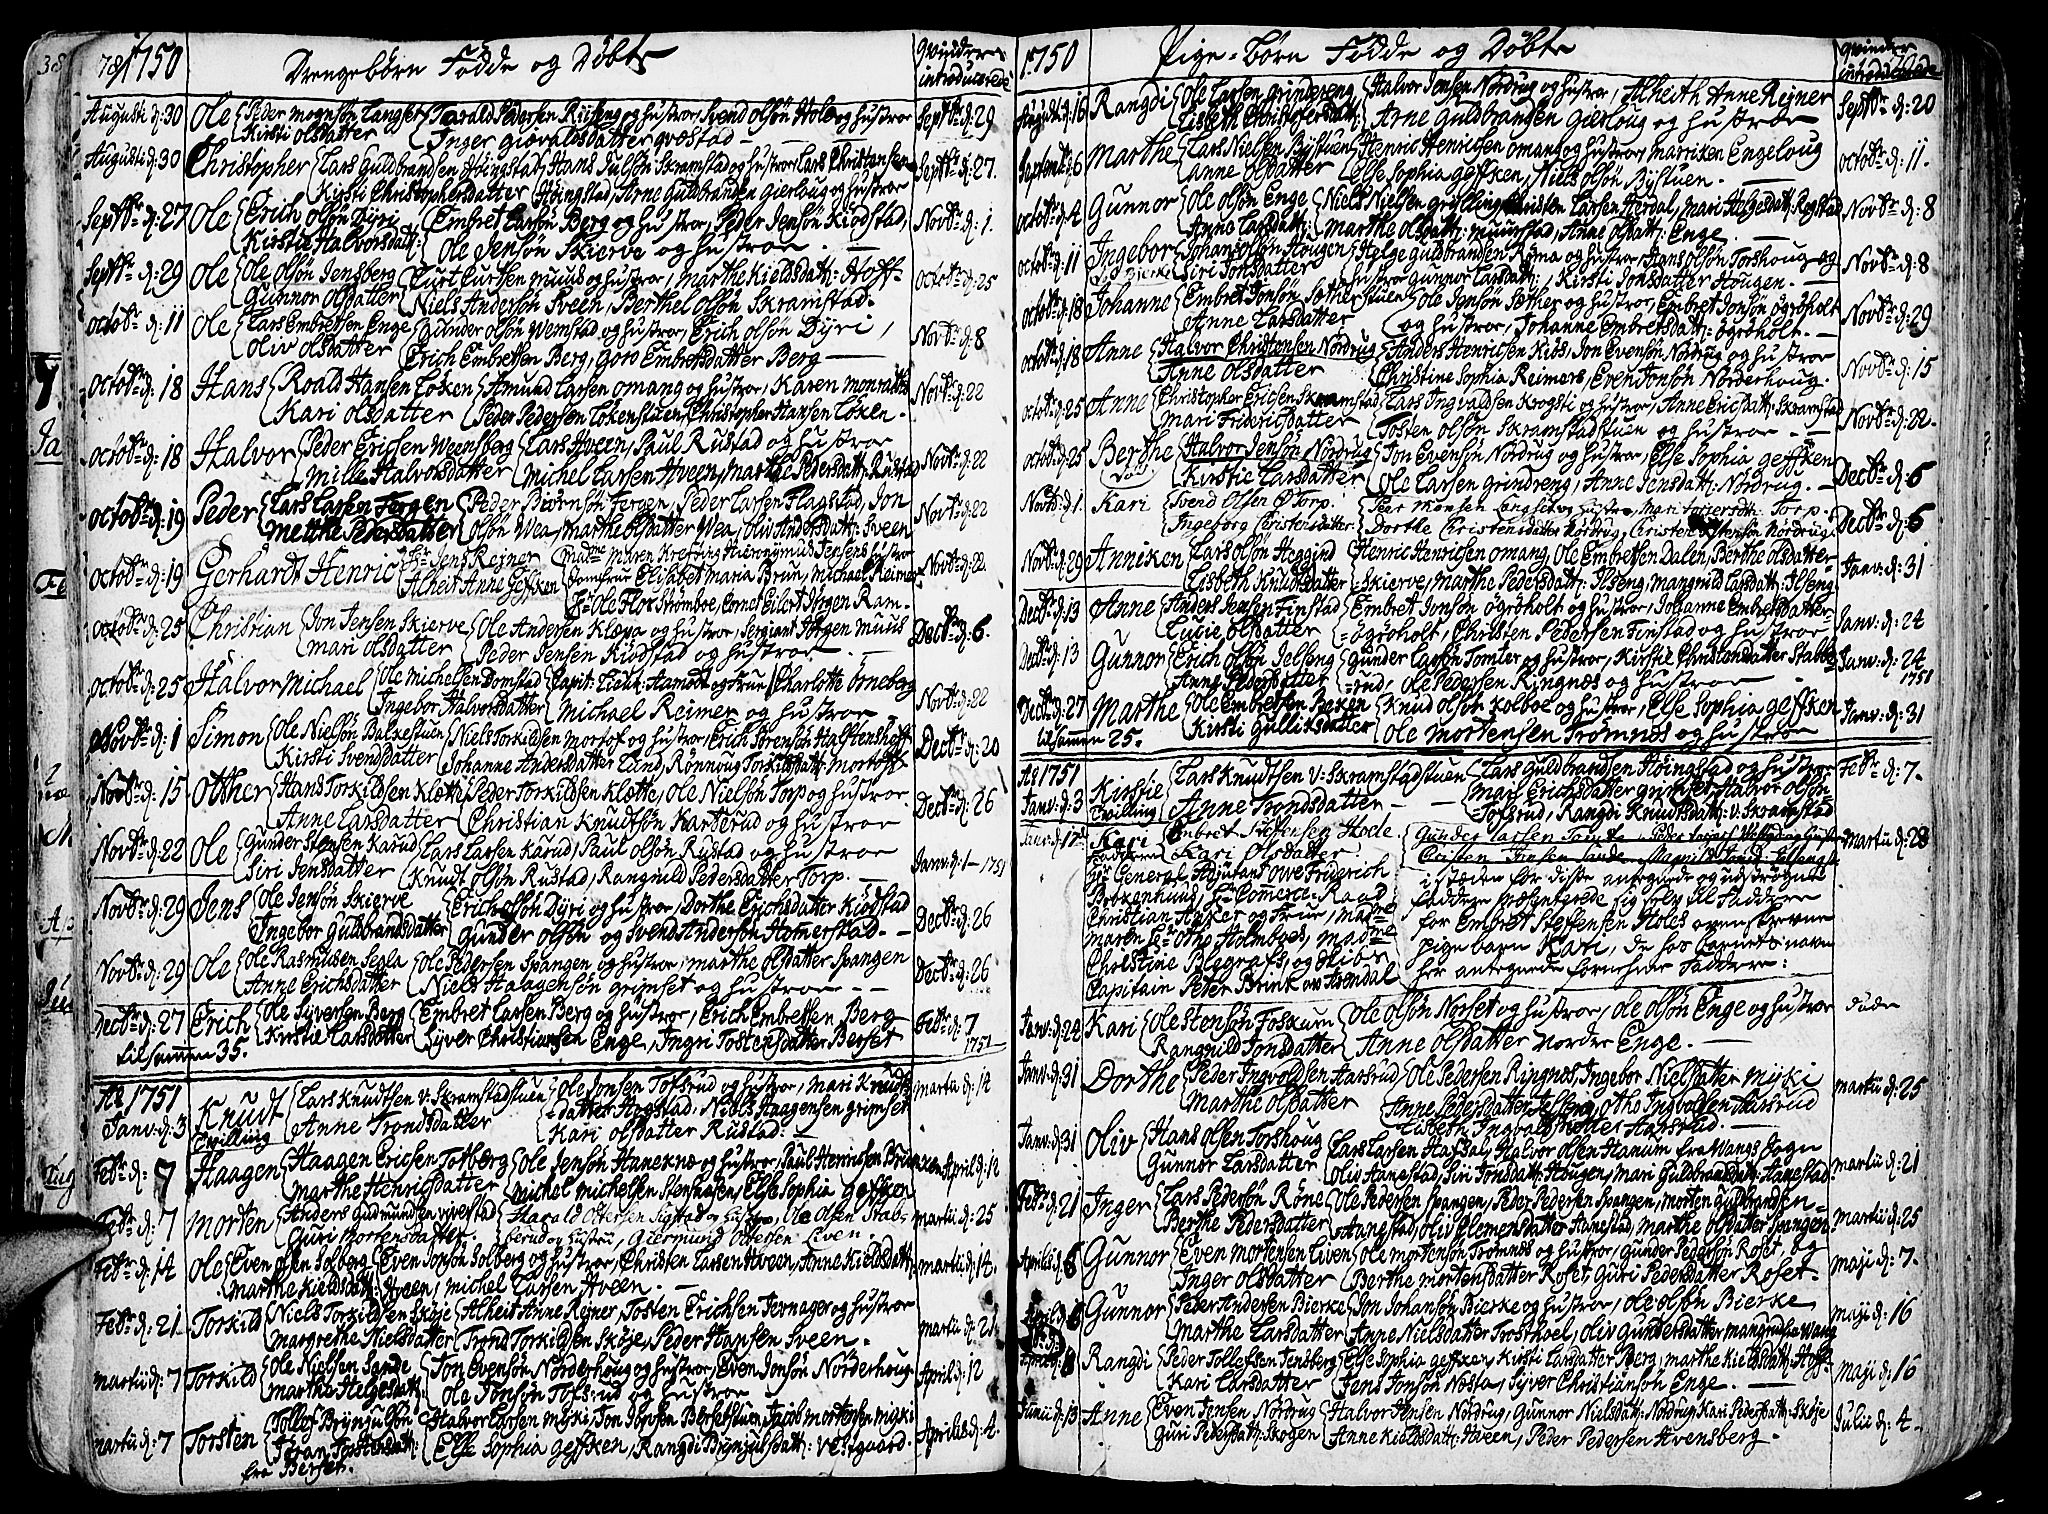 78
1750
Drengebørn Fødde og Døbte
Qvinder introducerede
Augusti d: 30 Ole Peder mognsøn Langset Kirsti olsdatter
og hustroe, Svend olsøn Hole og hustroe
Septbr d: 29
Augusti d: 30 Christopher Lars Guldbrandsen Høingstad Kirsti Christophersdatter
Hans Julsøn Skramstad og hustroe, Lars Christensen
Høingstad, Arne Guldbrandsen Gierloug og hustroe
Septbr d: 27.
Septbr d: 27 Ole Erich olsøn Dyri Kirstie Halvorsdatt:
Embret Larsøn Berg og hustroe, Peder Jensøn Kiødstad,
Ole Jensøn Skierve og hustroe. —
Novbr d: 1.
Septbr d: 29 Ole Ole olsøn Jensberg Gunnor olsdatter
Curt Curtsen muus og hustroe, Marthe Kieldsdatt: Hoff
Niels Andersøn Sveen, Berthel olsøn Skramstad.
octobr d: 25
octobr d: 11 Ole Lars Embretsen Enge oliv olsdatter
Gunder olsøn Wemstad og hustroe, Erich olsøn Dyri,
Erich Embretsen Berg, Goro Embretsdatter Berg —
Novbr d: 8
octobr d: 18 Hans Roald Hansen Løken Kari olsdatter
Amund Larsen omang og hustroe, Karen monrads
Peder Pedersen Løkenstuen, Christopher Hansen Løken.
Novbr d: 22
octobr d: 18 Halvor Peder Ericsen Weensberg Mille Halvorsdatter
Lars Hveen, Paul Rustad og hustroe
Michel Larsen Hveen, Marthe Pedersdatt: Rustad
Novbr d: 22
octobr d: 19 Peder Lars Larsen Fergen Mette Pedersdatter
Peder Biørnsøn Fergen, Peder Larsen Flagstad, Jon
Olsøn Wea, Marthe Olsdatter Wea, oliv Andersdatt: Sveen
Novbr d: 22
octobr d: 19 Gerhardt Henric Hr Jens Reimer Alheit Anne Geffken
Jomfrue Elisabet Maria Brun, Michael Reimer
Hr Ole Flor Strømboe, Cornet Eilert Jørgen Ram
Novbr d: 22
octobr d: 25 Christian Jon Jensen Skierve Mari olsdatter
Ole Andersen Klæpa og hustroe, Sergiant Jørgen Muus
Peder Jensen Kiødstad og hustroe. —
Decbr d: 6.
octobr d: 25 Halvor Michael Ole Michelsen Domstad Ingebor Halvorsdatter
Capit: Lieut: Aamodt og Frue, Charlotte Örneberg
Michael Reimer og hustroe
Novbr d: 22
Novbr d: 1 Simon Ole Nielsøn Balkestuen Kirsti Svendsdatter
Niels Torkildsen Mortof og hustroe, Erich Sørensøn Halstenshoff
Johanne Andersdatter Lund, Rønnoug Torkildsdatt: Mortoff
Decbr d: 20
Novbr d: 15 Otther Hans Torkildsen Klætte Anne Larsdatter
Peder Torkildsen Klætte, Ole Nielsøn Torp og hustroe.
Christian Knudsøn Karterud og hustroe
Decbr d: 26
Novbr d: 22 Ole Gunder Stensen Karud Siri Jensdatter
Lars Larsen Karud, Paul olsøn Rustad og hustroe
Knudt olsøn Rustad, Rangnild Pedersdatter Torp. —
Janv: d: 1 — 1751
Novbr d: 29 Jens Ole Jensøn Skierve Ingebor Guldbrandsdatter
Erich olsøn Dyri og hustroe, Dorthe Erichsdatter Kiødstad
Gunder olsøn og Svend Andersøn Homerstad. —
Decbr d: 26
Novbr d: 29 Ole Ole Rasmusen Segla Anne Erichsdatter
Ole Pedersen Spangen og hustroe, Marthe olsdatter Spangen
Niels Haagensøn Grimset og hustroe — —
Decbr d: 26
Decbr d: 27 Erich Ole Syversen Berg Kirstie Larsdatter
Embret Larsen Berg og hustroe, Erich Embretsen Berg
Syver Christiansen Enge, Ingri Tostensdatter Berset
Febr: d: 7 1751
tilsammen 35.
Ao 1751
Janv: d: 3 Knudt Tvilling Lars Knudtsen v: Skramstadstuen Anne Trondsdatter
Ole Jonsen Tofsrud og hustroe, Mari Knuds
datter Hogstad, Niels Haagensen Grimset
Kari olsdatter Rustad. —
martii d: 14
Febr d: 7 Haagen Haagen Ericsen Torberg Marthe Henricsdatter
Ole Jensøn Haneknæ og hustroe, Paul Henricsen Bruun
Michel Michelsen Stenhaasen, Else Sophia Geffken
April d: 12
Febr d: 7 Morten Anders Gudmundsen Guri Mortensdatter.
Harald Ottersen Sigstad og hustroe, Ole Olsen Stab
berud og hustru, Giermund Ottersen Liven.
Martii d: 25
Febr d: 14 Ole Even olsen Solberg Marthe Kieldsdatt:
Even Jonsøn Solberg og hustroe, Christen Larsen Hveen, Anne Kieldsdatt:
Hveen, Michel Larsen Hveen. —
martii d: 14.
Febr: d: 21 Torkild Niels Torkildsen Skøje Margrethe Nielsdatter
Alheit Anne Reimer, Tosten Erichsen Jernager og hustroe
Trond Torkildsen Skøje, Peder Hansen Sveen.
martii d: 21
martii d: 7 Torkild Ole Nielsen Sande Marthe Helgesdatt:
Jon Evensøn Norderhoug og hustroe, Even Jonsøn Norderhoug
Ole Jonsøn Tofsrud og hustroe
April d: 12
martii d: 7 Torsten Tollef Brynjulsøn Joran Torstensdatt: fra Berset.
Halvor Larsen Miski, Jon Joensen Bersetstuen, Jacob Mortensen Miski
Else Sophia Geffken, Rangdi Brynjulsdatt: Vestgaard.
Aprilis d: 4.
1750
Pige-Børn Fødde og Døbte
Qvinder introducerede
Augusti d: 16 Rangdi Ole Larsen Grindreng Lisbeth Christofersdatt:
Halvor Jensen Nordrug og hustroe, Alheith Anne Rejmer
Arne Guldbransen Gierloug og hustroe
Septbr d: 20
Septembr d: 6 Marthe Lars Nielsen Bystuen Anne olsdatter
Henric Henricsen omang og hustroe, Marriken Engeloug
Else Sophia Geffken, Niels olsøn Bystuen. —
octobr d: 11.
octobr d: 4 Gunnor Ole olsøn Enge Anne Larsdatt:
Niels Nielsen Grylling, Christen Larsen Herdal, Mari Helgesdatt: Rogstad
Marthe olsdatt: Muurstad, Anne olsdatt: Enge. —
Novbr d: 8
octobr d: 11 Ingebor Johans olsøn Hougen Siri Jonsdatter
Helge Guldbrandsen Rema og hustroe, Hans olsøn Torshoug og
hustroe Gunnor Larsdatt:, Kirsti Jonsdatter Hougen. —
Novbr d: 8
octobr d: 18 Johanne Embret Jonsøn Setherstuen Anne Larsdatter
Ole Jensøn Sether og hustroe, Embret Jonsøn øgrøholt
og hustroe, Johanne Embretsdatt: øgrøholt. —
Novbr d: 29
octobr d: 18 Anne Halvor Christensen Nordrug Anne olsdatter
Anders Henricsen Kiøs, Jon Evensøn Nordrug og hustroe
Christine Sophia Reimers, Even Jonsøn Norderhoug.
Novbr d: 15
octobr d: 25 Anne Christopher Ericsen Skramstad Mari Fridricsdatter
Lars Ingvaldsen Krogsti og hustroe, Anne Ericsdatt: Skramstad
Tosten olsøn Skramstadstuen og hustroe — —
Novbr d: 22.
octobr d: 25 Berthe død Halvor Jensøn Nordrug Kirstie Larsdatter
Jon Evensøn Nordrug og hustroe, Else Sophia Geffken
Ole Larsen Grindreng, Anne Jensdatt: Nordrug. —
Decbr d: 6
Novbr d: 1. Kari Svend Olsen Ø Torp. Ingeborg Christensdatter
Peer Monsen Langset og hustroe, Mari Torgersdt: Torp.
Dorthe Christensdatter Nordrug, Christen Nordrug
Decbr d: 6
Novbr d: 29 Anniken Lars olsøn Heggind Lisbeth Knudsdatter
Henric Henricsen omang, Ole Embretsen Dalen, Berthe olsdatter
Skierve, Marthe Pedersdatt: Ilseng, Mangnild Larsdatt: Ilseng
Janv: d: 31
Decbr d: 13 Anne Anders Jensen Finstad Lucie olsdatter
Embret Jonsøn øgrøholt og hustroe, Johanne Embretsdatter
øgrøholt, Christen Pedersen Finstad og hustroe
Janv: d: 24
Decbr d: 13 Gunnor Erich olsøn Jelseng Anne Pedersdatter
Gunder Larsøn Tomter og hustroe, Kirstie Christensdatter Stabbe
rud, Ole Pedersen Ringnæs og hustroe
Janv: d: 24 1751
Decbr d: 27 Marthe Ole Embretsen Bekken Kirsti Gulliksdatter
Knud olsøn Kolboe og hustroe, Else Sophia Geffken
Ole Mortensen Trømnæs og hustroe
Janv: d: 31
tilsammen 25.
Ao 1751
Janv: d: 3 Kirstie Tvilling Lars Knudtsen v: Skramstadstuen Anne Trondsdatter —
Lars Guldbrandsen Høingstad og hustroe
Mari Erichsdatter Grimset, Halvor olsøn
Tofsrud, Rangdi Knudsdatt: v: Skramstad
Febr: d: 7.
Janv: d: 17de Kari Embret Steffensen Hole Kari Olsdatter.
Martii d: 28
Fadderne
Hr General Adjutant Ove Fridrich
Bokkenhuus, Hr Commerce-Raad
Christian Anker og Frue, Madme
Maren Sr Otho Holmboes, Madme
Christine Blegrafs, og Hr
Capitain Peter Brink ov Aasdal
i steden for disse antegnede og udstrøgne
faddere præsenterede sig selv til Faddere
for Embret Steffensen Holes ovenskrevne
pige barn Kari, de hos barnets navn
her antegnede fornehme Faddere:
Janv: d: 24 Kari Ole Stensøn Foskum Rangnild Jonsdatter
Ole olsøn Norset og hustroe, Ole olsøn Enge og hustroe
Anne olsdatter Norder Enge. —
Janv: d: 31 Dorthe Peder Ingvoldsen Aarsrud Marthe olsdatter
Ole Pedersen Ringnæs, Ingebor Nielsdatter Miski
Anne Pedersdatter Jelseng, Otho Ingvoldsen Aarsrud
Lisbeth Ingvoldsdatter Aarsrud. —
martii d: 25
Janv: d: 31 Oliv Hans olsen Torshoug Gunnor Larsdatter
Lars Larsen Hafsal, Halvor olsen Hanum fra Wangs Sogn
Oliv Hanestad, Siri Jonsdatter Hougen, Mari Guldbransdatt: Hanestad
martii d: 21
Febr: d: 21 Inger Lars Pedersøn Røne Berthe Pedersdatter
Ole Pedersen Spangen, Peder Pedersen Spangen, Morten Guldbrandsen
Aanestad, oliv Clemensdatter Aanestad, Marthe olsdatter Spangen
martii d: 25
Aprilis d: 6 Gunnor Even Mortensen Liven Inger olsdatter
Ole Mortensøn Trømnæs og hustroe, Gunder Pedersøn Roset, og
Berthe Mortensdatter Roset, Guri Pedersdatter Roset.
Maji d: 7.
April d: 6 Gunnor Peder Andersen Bierke Marthe Larsdatter
Jon Johansøn Bierke og hustroe, Ole olsøn Bierke,
Anne Nielsdatter Trosthoel, Oliv Gundersdatter Mangrud fra Wang
Maji d: 16
Rangdi Peder Tollefsen Jensberg Kari Larsdatter
Else Sophia Geffken, Kirsti Larsdatter Berg, Marthe Kieldsdatt: Hoff
Jens Jonsøn Nosta, Syver Christiansøn Enge. —
Maji d: 16
Junii d: 13 Anne Even Jensen Nordrug Guri Pedersdatt: Skogen
Halvor Jensen Nordrug, Gunnor Nielsdatt: Nordrug, Kari Pedersdatt: Skøje
Anne Kieldsdatt: Hveen, Peder Pedersen Hvensberg.
Julii d: 4.